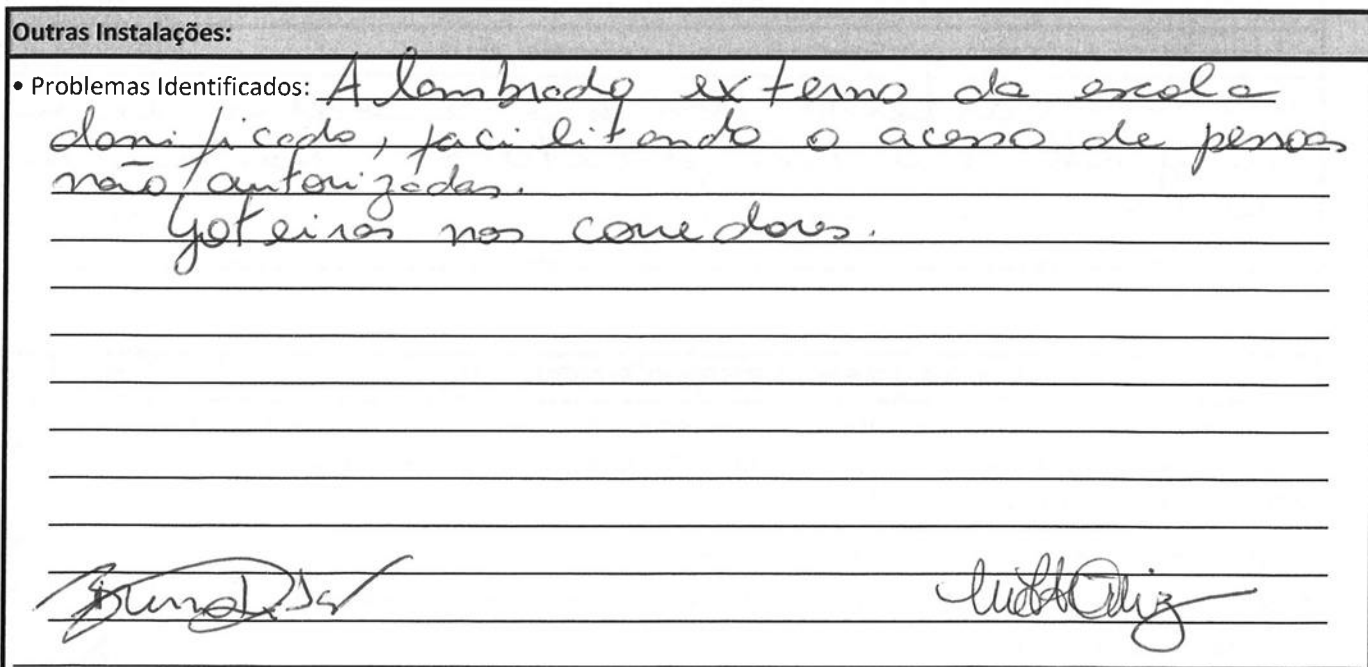 Outras Instalações:
• Problemas Identificados: Alambrado externo da escola
danificado, facilitando o acesso de pessoas
não autorizadas.
Goteiras nos corredores.